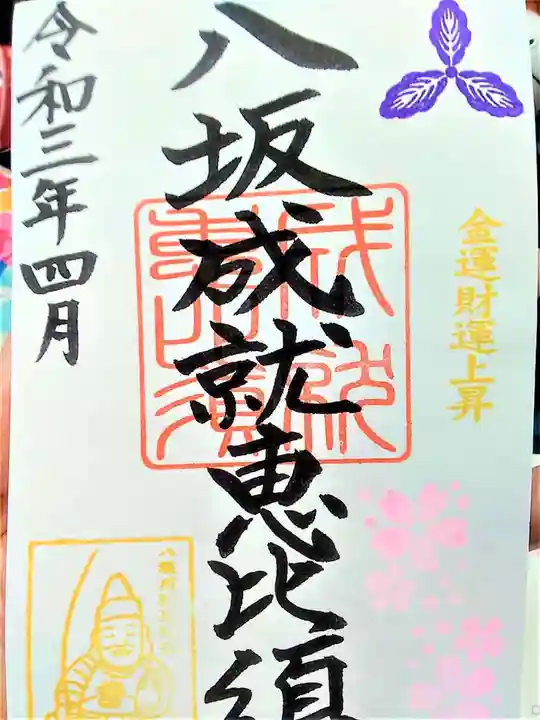 金運財運上昇
八坂成就恵比須
令和三年四月